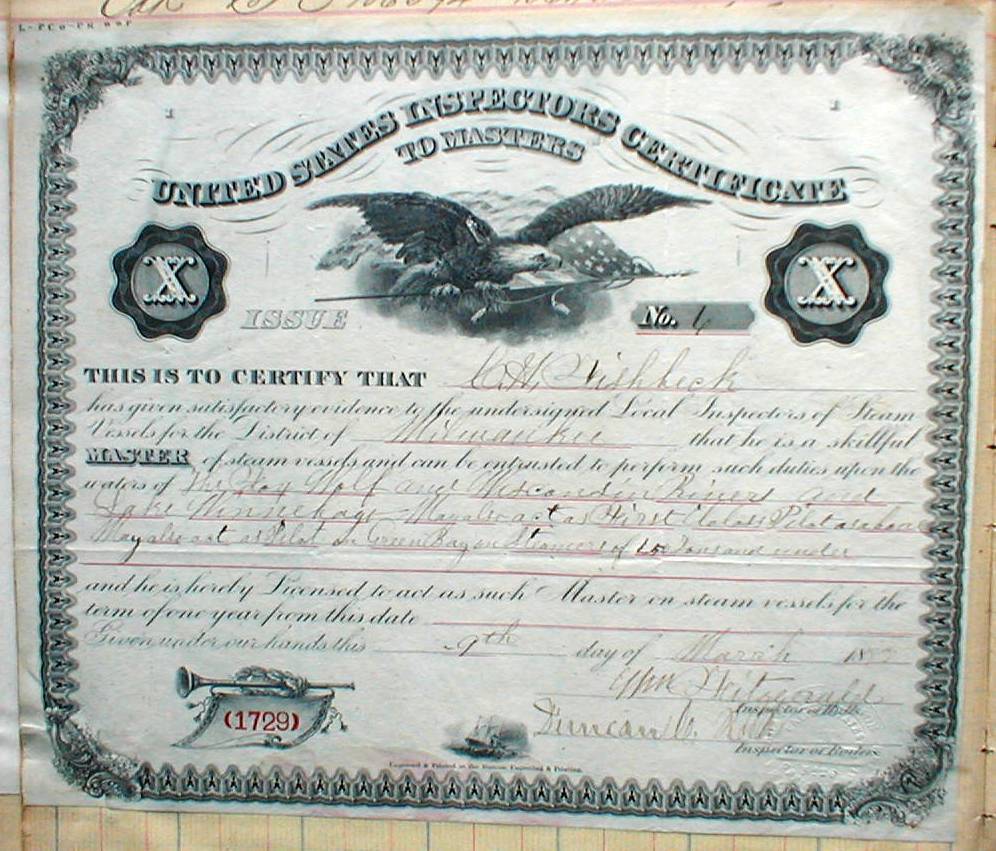 UNITED STATES INSPECTORS CERTIFICATE
TO MASTERS
X
X
ISSUE
No.
THIS IS TO CERTIFY THAT C. H. Fishbeck
has given satisfactory evidence to the undersigned Local Inspectors of Steam
Vessels for the District of Milwaukee that he is a skillful
MASTER of steam vessels and can be entrusted to perform such duties upon the
waters of the Fox Wolf and Wisconsin Rivers and
Lake Winnebago May also act as First Class Pilot as above
May also act as Pilot on Green Bay on Steamers of Tons and under
and he is hereby Licensed to act as such Master on steam vessels for the
term of one year from this date
Given under our hands this 9th day of March 18
Wm Fitzgerald
Inspector of Hulls
Duncan C.
Inspector of Boilers
(1729)
Engraved & Printed at the Bureau, Engraving & Printing.